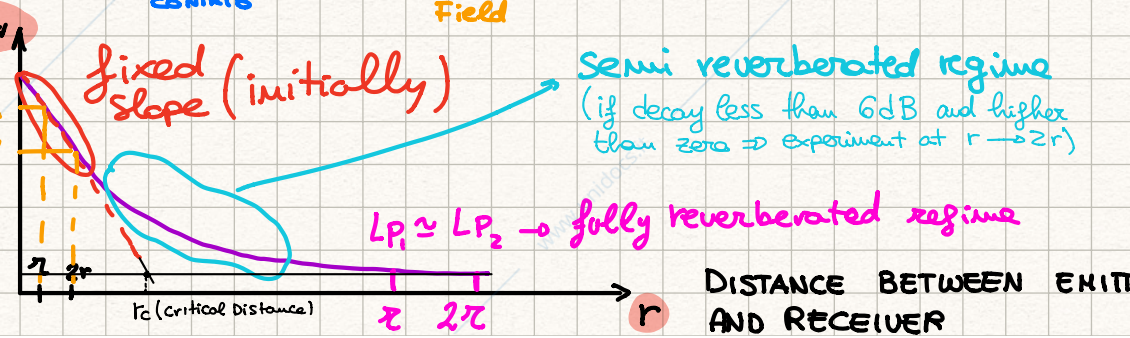 Field
fixed
slope (initially)
semi reverberated regime
(if decay less than 6dB and higher
than zero ⇒ experiment at r → 2r)
LP₁ ≃ LP₂ → fully reverberated regime
r 2r
rc (critical Distance)
r 2r
r
DISTANCE BETWEEN EMITT
AND RECEIVER